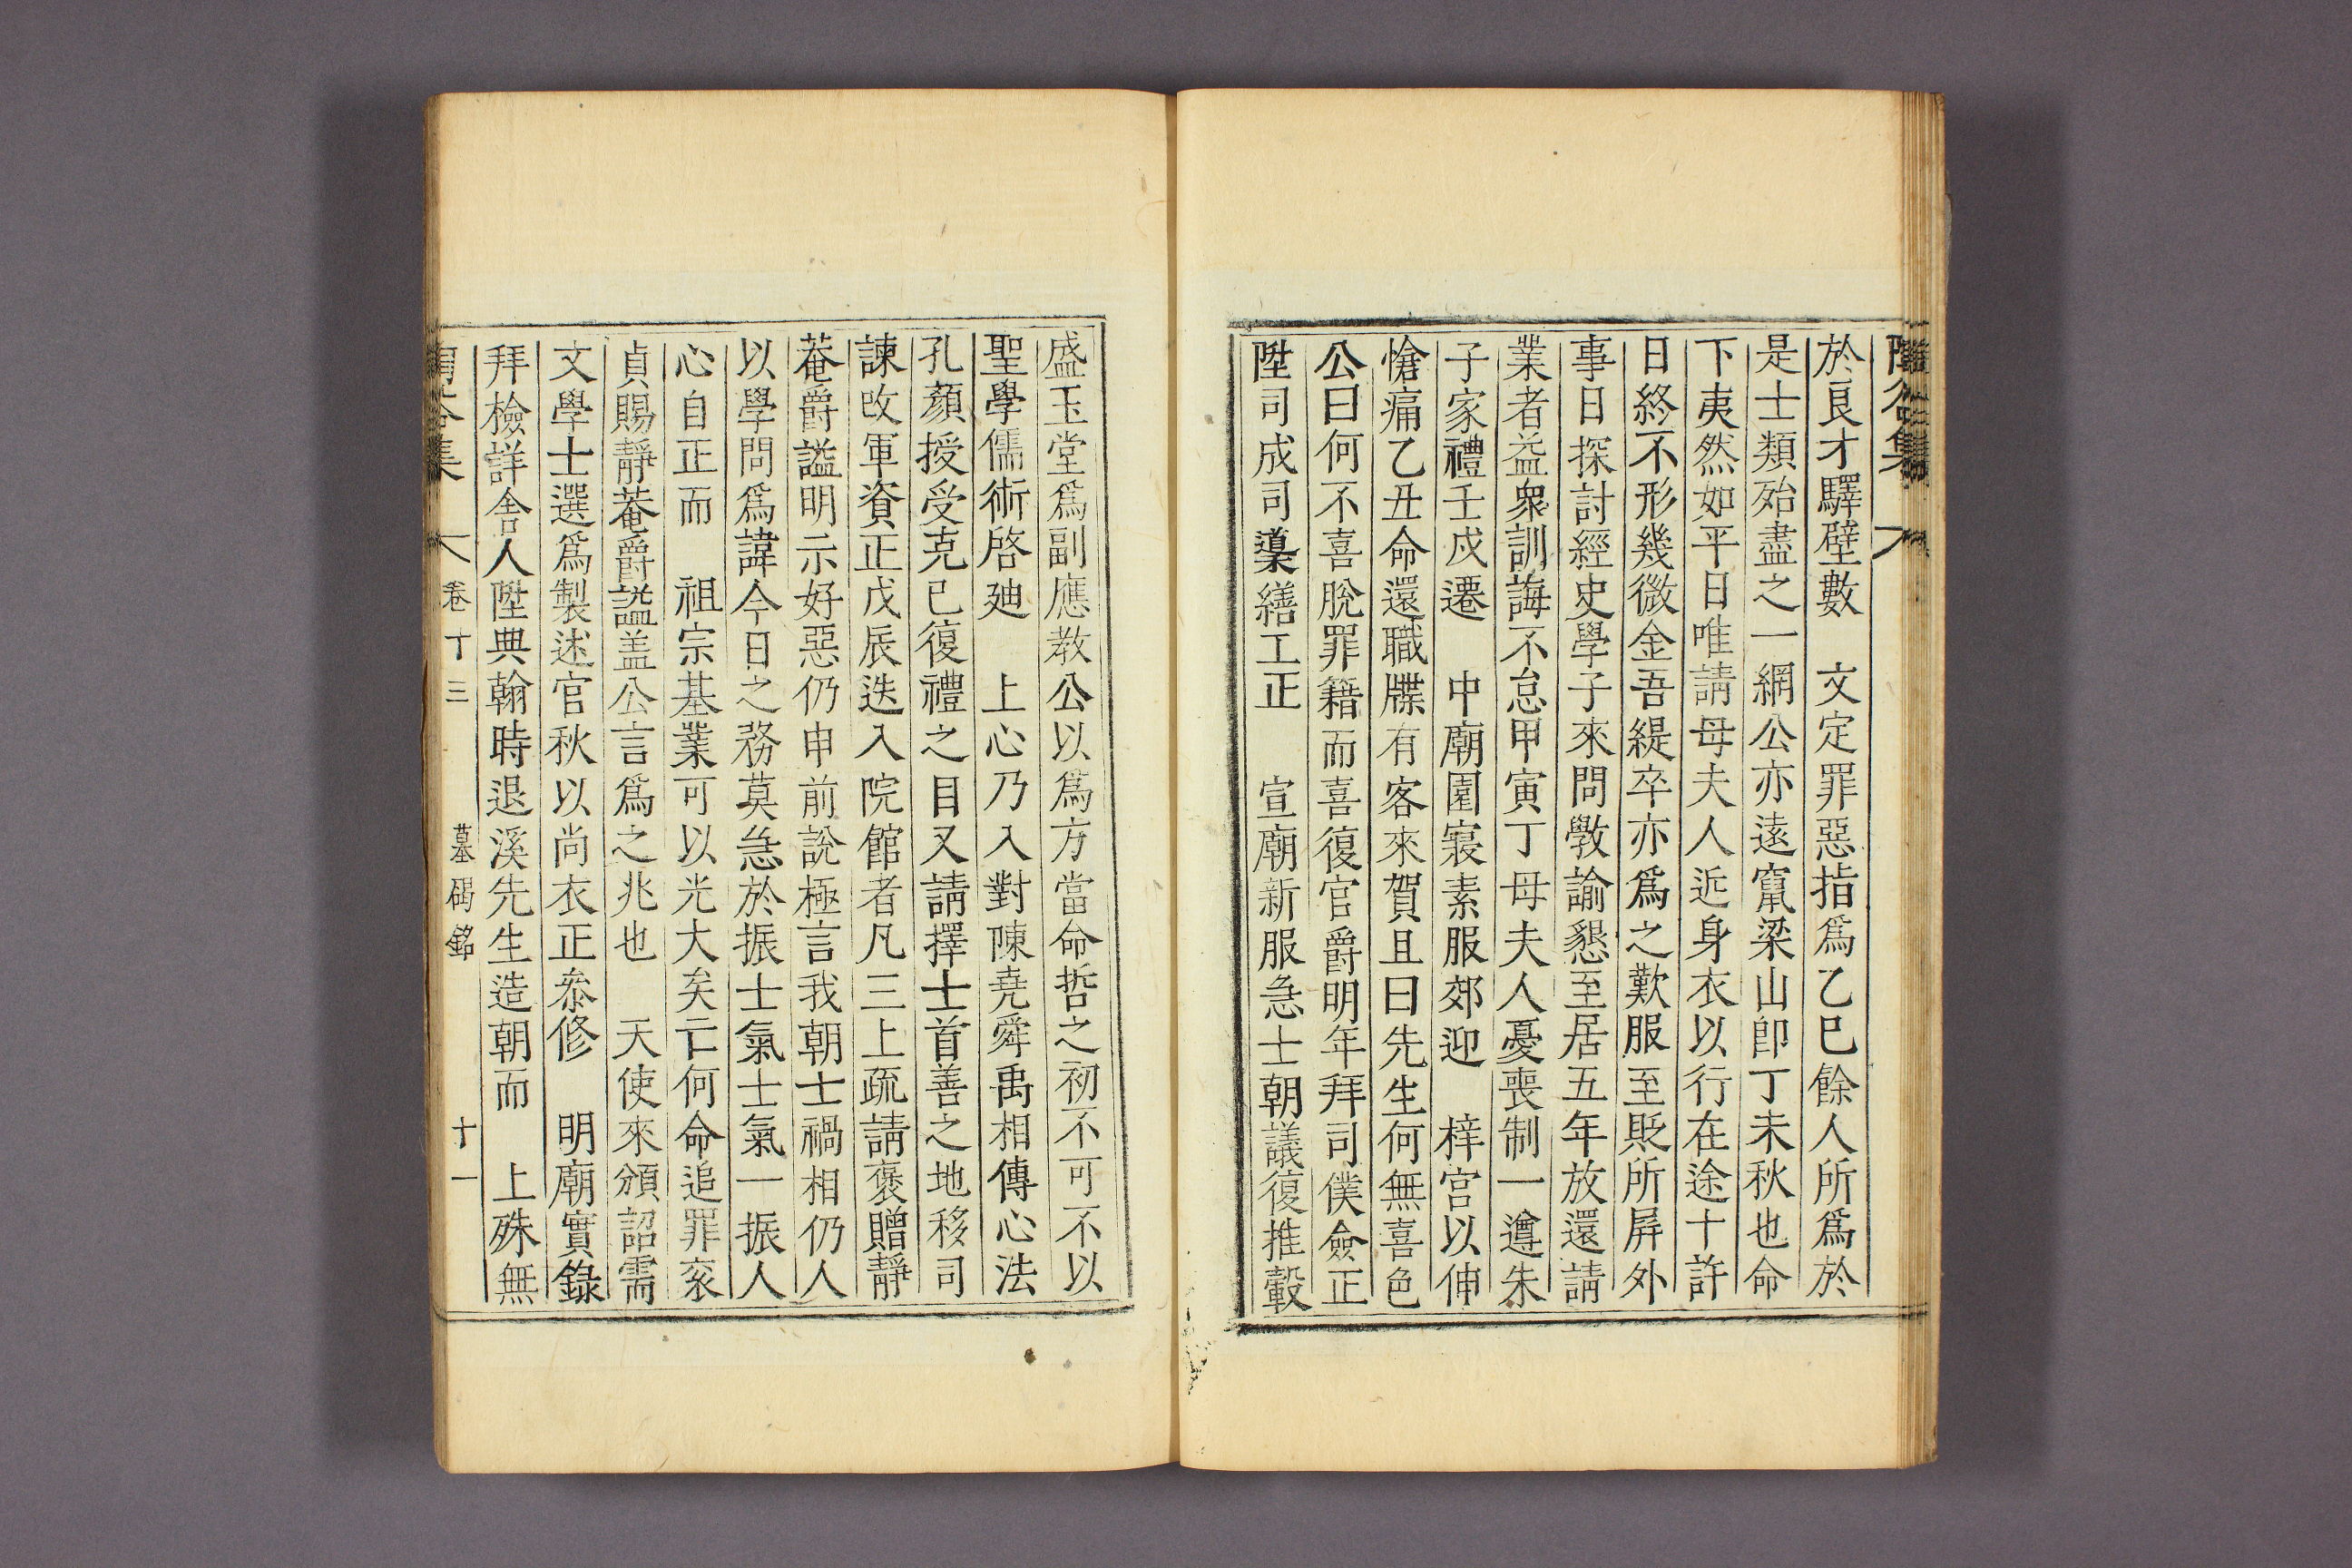 陶谷集
於良才驛壁數 文定罪惡指爲乙巳餘人所爲於
是士類殆盡之一網公亦遠竄梁山卽丁未秋也命
下夷然如平日唯請母夫人近身衣以行在途十許
日終不形幾微金吾緹卒亦爲之歎服至貶所屛外
事日探討經史學子來問敎諭懇至居五年放還請
業者益衆訓誨不怠甲寅丁母夫人憂喪制一遵朱
子家禮壬戌遷 中廟園寢素服郊迎 梓宮以伸
愴痛乙丑命還職牒有客來賀且曰先生何無喜色
公曰何不喜脫罪籍而喜復官爵明年拜司僕僉正
陞司成司䆃繕工正 宣廟新服急士朝議復推轂
盛玉堂爲副應敎公以爲方當命哲之初不可不以
聖學儒術啓廸 上心乃入對陳堯舜禹相傳心法
孔顏授受克己復禮之目又請擇士首善之地移司
諫改軍資正戊辰迭入院館者凡三上疏請褒贈靜
菴爵諡明示好惡仍申前說極言我朝士禍相仍人
以學問爲諱今日之務莫急於振士氣士氣一振人
心自正而 祖宗基業可以光大矣亡何命追罪袞
貞賜靜菴爵諡盖公言爲之兆也 天使來頒詔需
文學士選爲製述官秋以尙衣正叅修 明廟實錄
拜檢詳舍人陞典翰時退溪先生造朝而 上殊無
集 卷十三 墓碣銘 十一